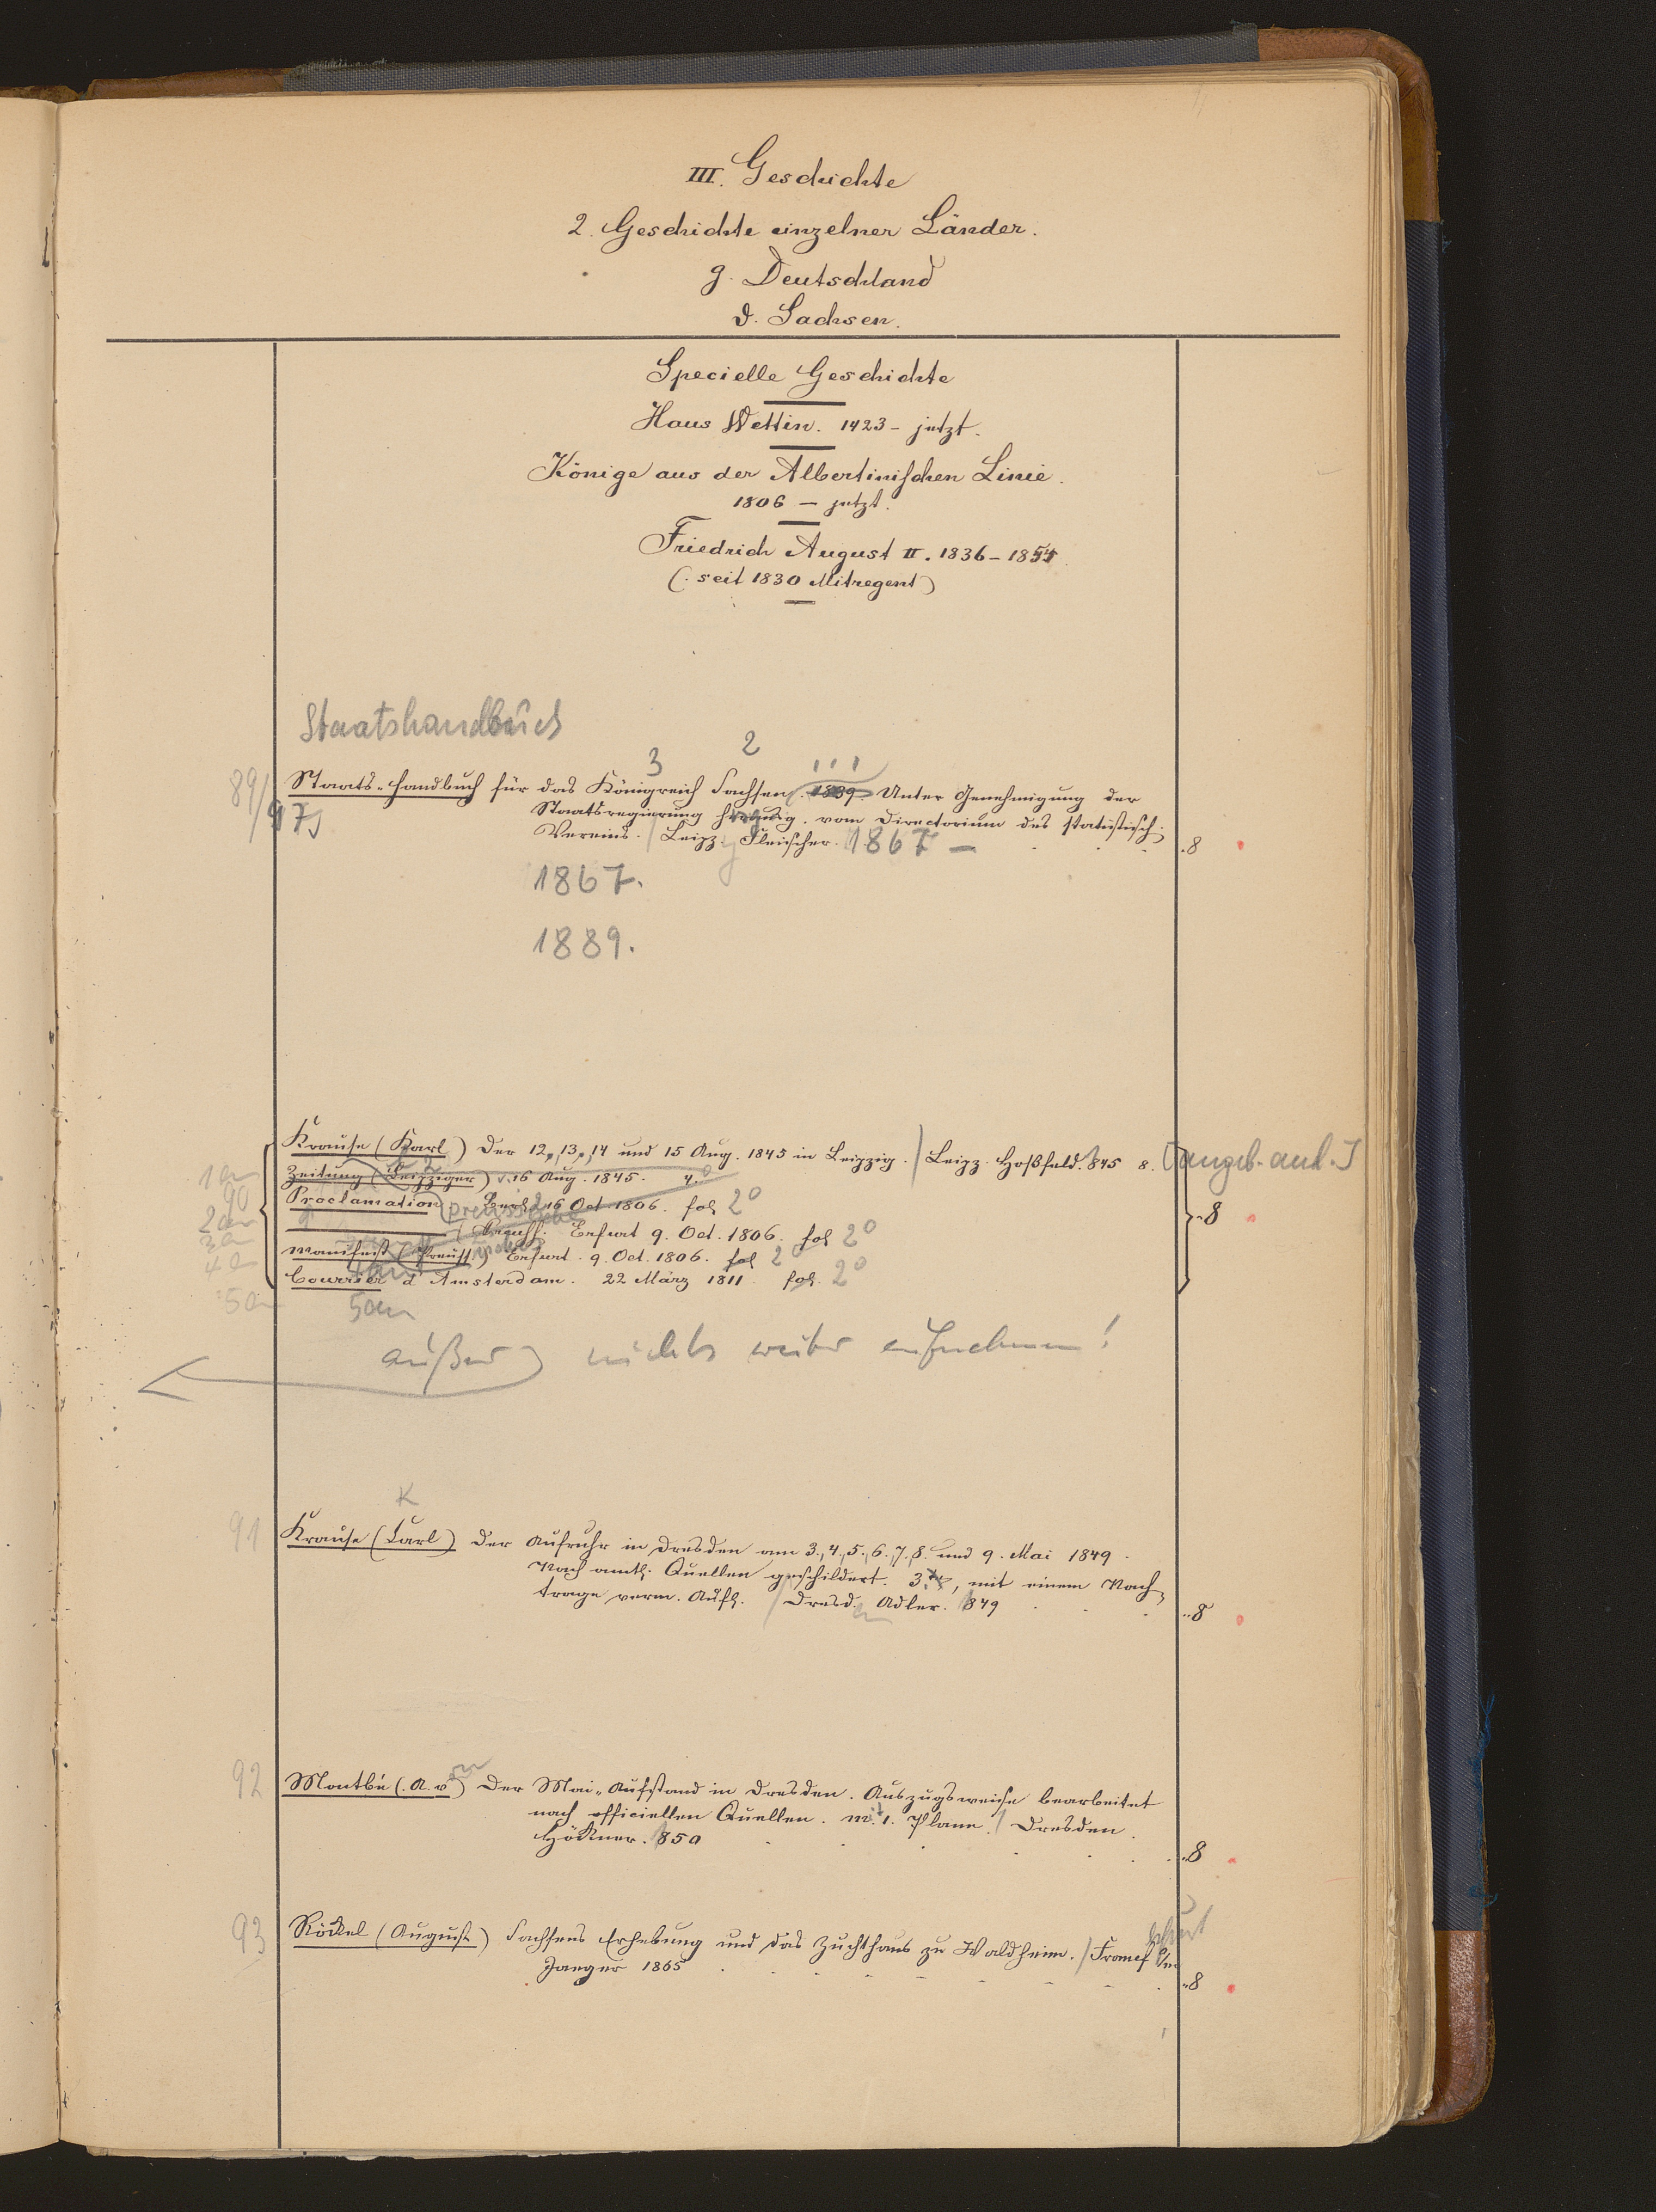 III. Geschichte
2. Geschichte einzelner Länder.
g. Deutschland
d. Sachsen.
Specielle Geschichte
Haus Wettin. 1423 - jetzt.
Könige aus der Albertinischen Linie.
1806 - jetzt.
Friedrich August II. 1836 - 1854
(. seit 1830 Mitregent)
Staatshandbuch
3 2
89/97
Staats-Handbuch für das Königreich Sachsen. 1889. Unter Genehmigung der
Staatsregierung herausg. vom Directorium des statistisch.
Vereins. / Leipz. Fleischer. 1867 - 8
1867.
1889.
Krause (Karl) Der 12., 13., 14 und 15 Aug. 1845 in Leipzig. / Leipz. Hoßfeld. 845 8. [angeb. and.]
1an Zeitung (Leipziger) v. 16 Aug. 1845. 4.°
90 2an Proclamation. 16 Oct 1806. fol 2°
3an (Preuss. Erfurt 9. Oct. 1806. fol 2° 8
4an Manifest (Preuss.) Erfurt. 9. Oct. 1806. fol 2
Courrier d'Amsterdam. 22 März 1811. fol. 2°
5an 5an
außer nichts weiter aufnehmen!
K
91 Krause (Carl) Der Aufruhr in Dresden am 3., 4., 5., 6., 7., 8. und 9. Mai 1849.
Nach amtl. Quellen geschildert. 3te, mit einem Nach-
trage verm. Aufl. / Dresd. Adler. 849 8
92 Montbé (. A. von) Der Mai-Aufstand in Dresden. Auszugsweise bearbeitet
nach officiellen Quellen. Mit 1. Plane. / Dresden.
Höckner. 850 8
93 Röckel (August) Sachsens Erhebung und das Zuchthaus zu Waldheim. / Francf a/m
Jaeger 1865 8